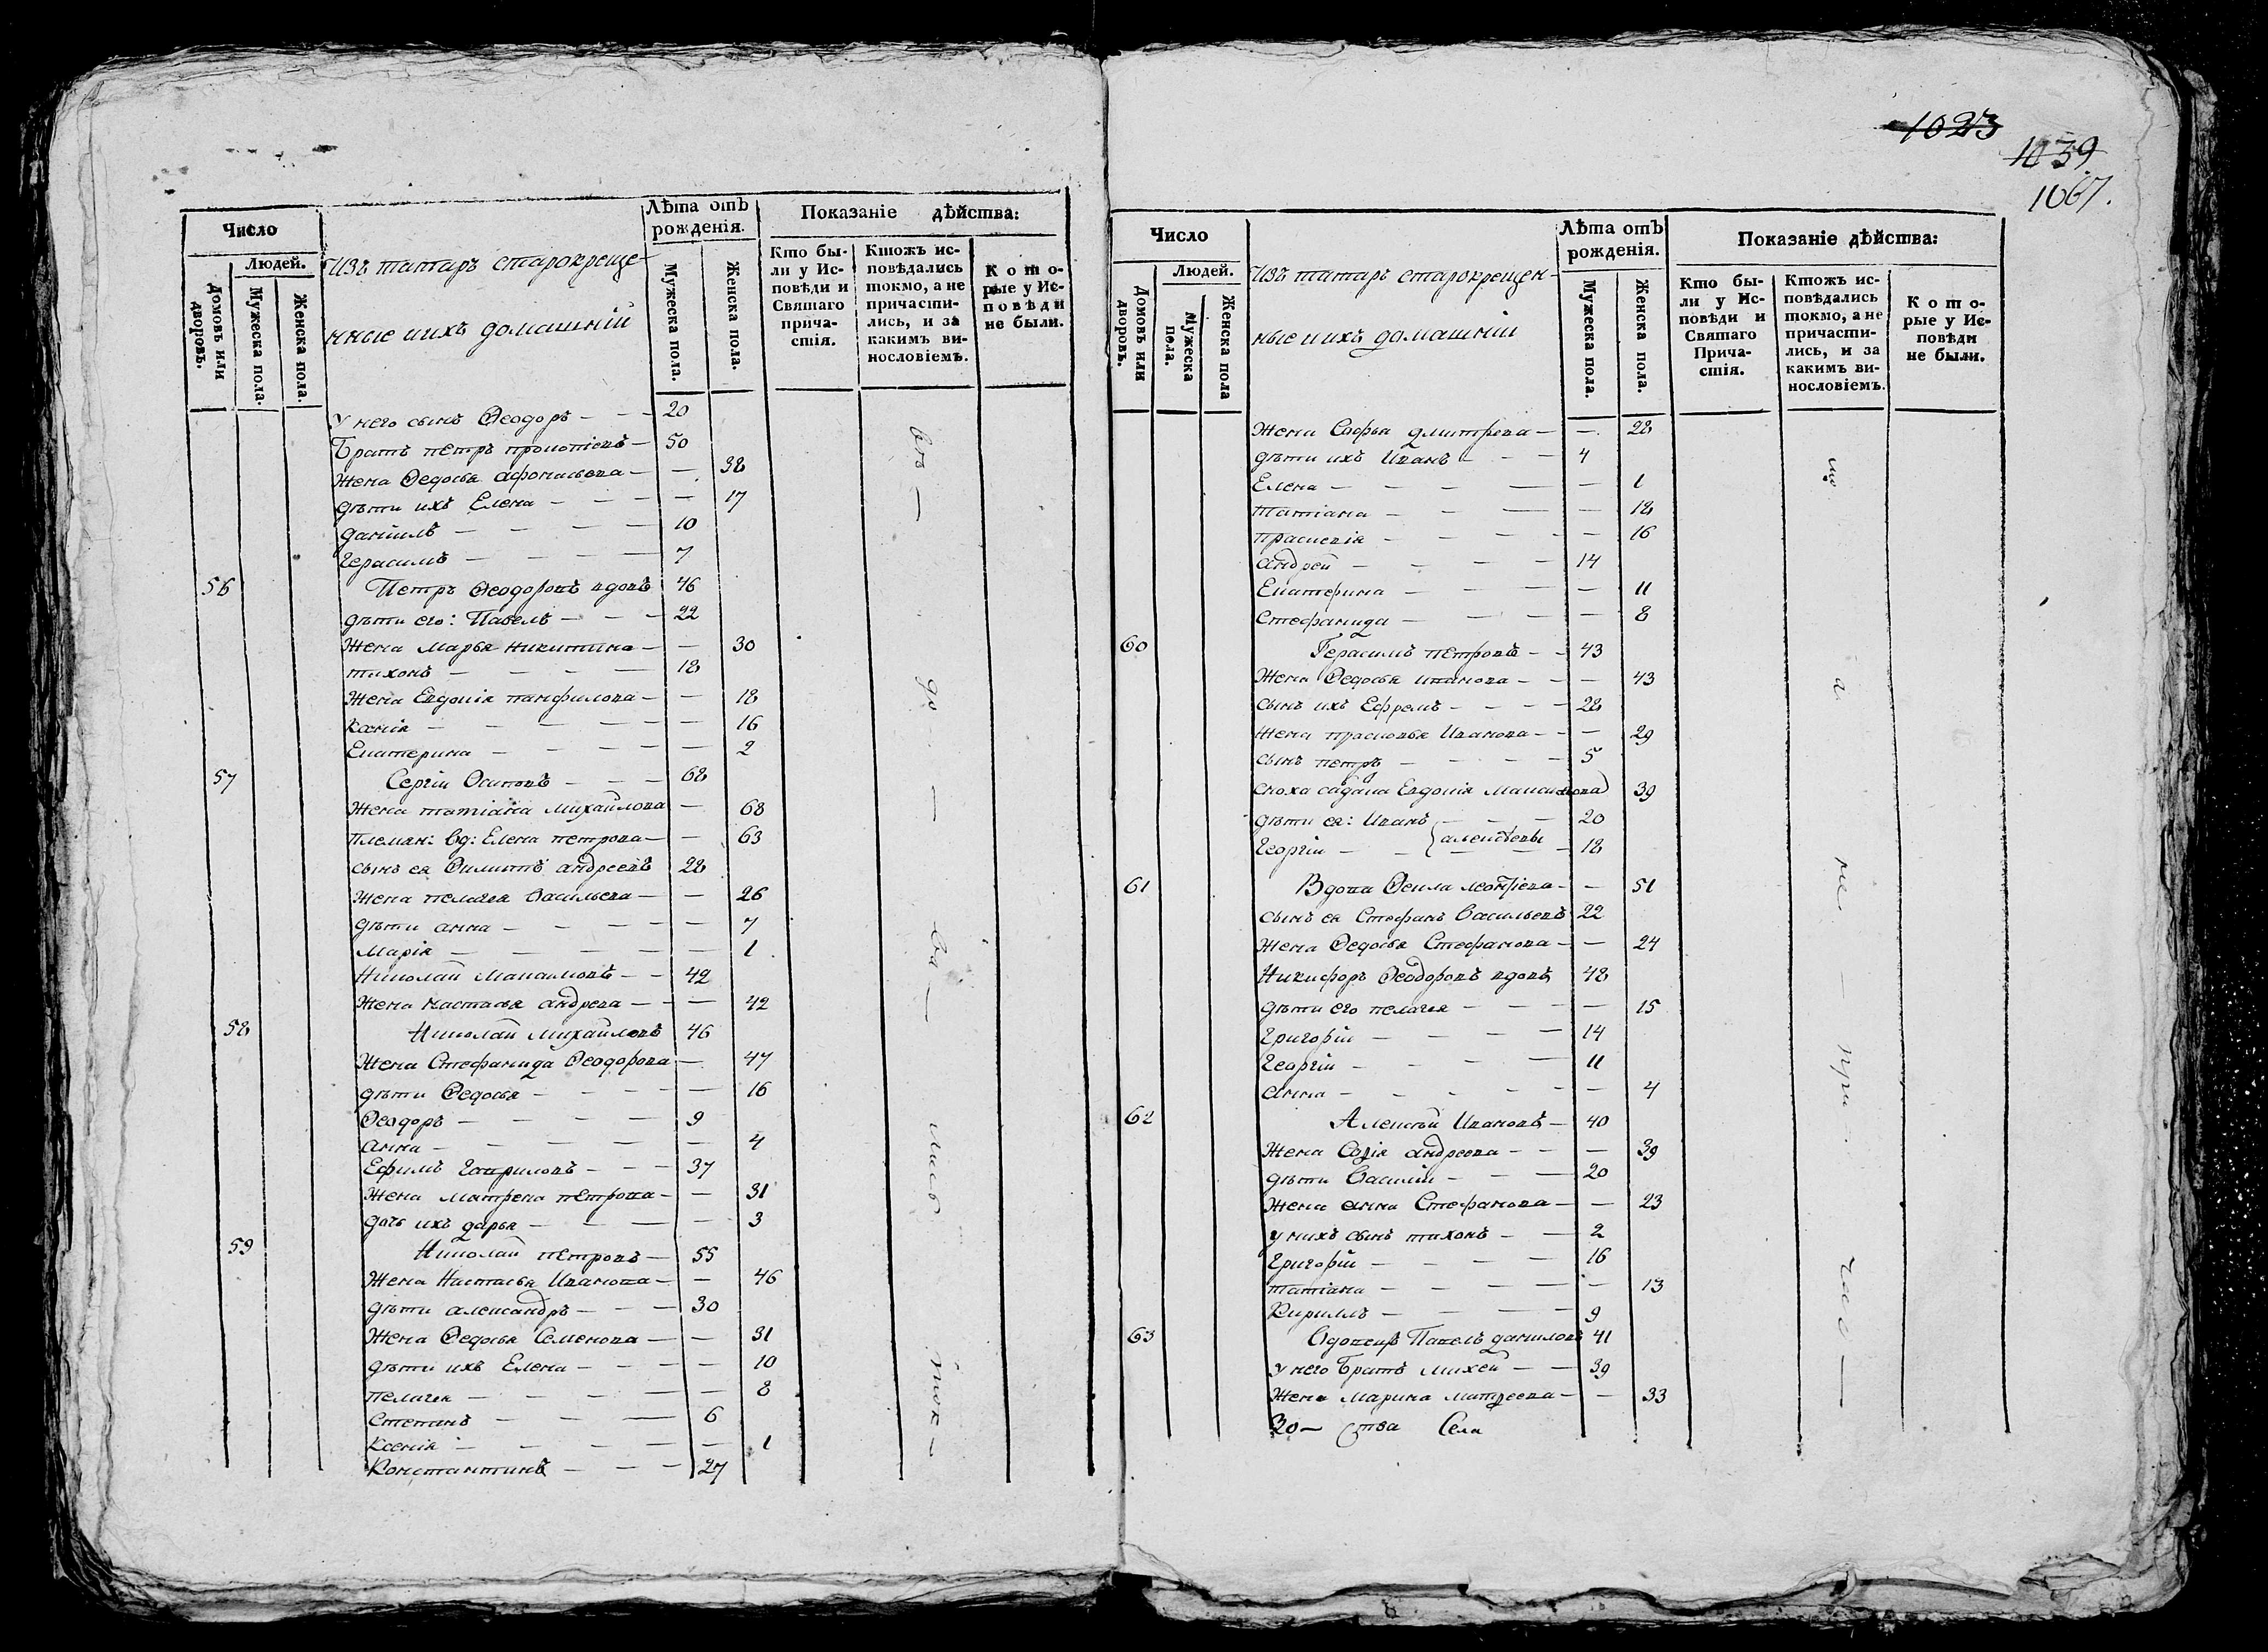 Число
Людей.
Домовъ или дворовъ.
Мужеска пола.
Женска пола.
Изъ татаръ старокреще-
нные и ихъ домашніи
Лѣта отъ рожденія.
Мужеска пола.
Женска пола.
Показаніе дѣйства:
Кто бы-
ли у Ис-
повѣди и
Святаго
прича-
стія.
Ктожъ ис-
повѣдались
токмо, а не
причасти-
лись, и за
какимъ ви-
нословіемъ.
Кото-
рые у Ис-
повѣди
не были.
У него сынъ Ѳеодоръ — — 20
Братъ петръ прокопіевъ — 50
Жена Ѳедосья — — 38
дѣти ихъ Елена — — — — 17
даніилъ — — — — 10
Герасимъ — — — — 7
56 Петръ Ѳеодоровъ вдовъ 46
дѣти его: Павелъ — — — 22
Жена Марья никитина — — 30
тихонъ — — — 18
Жена Евдокія панфилова — — 18
Ксенія — — — — — — 16
Екатерина — — — — — 2
57 Сергіи Осиповъ — — — 68
Жена татіана михайлова — 68
племян: вд: Елена петрова — — 63
сынъ ея андреевъ 28
Жена пелагея Васильева — — 26
дѣти анна — — — — — 7
Марія — — — — — 1
Николай Максимовъ — — 42
Жена настасья андрева — — — 42
58 Николай Михайловъ 46
Жена Стефанида Ѳеодорова — 47
дѣти Ѳедосья — — — — — 16
Ѳеодоръ — — — — 9
анна — — — — — 4
Ефимъ Гавриловъ — — — 37
Жена матрена петрова — — 31
дочь ихъ дарья — — — — 3
59 Николай петровъ — 55
Жена Настасья Иванова — — 46
дѣти александръ — — — 30
Жена Ѳедосья Семенова — — 31
дѣти ихъ Елена — — — — 10
пелагея — — — — — 8
Степанъ — — — 6
Ксенія — — — — — 1
Константинъ — — — 27
1023
1039
1067.
Число
Людей.
Домовъ или дворовъ.
Мужеска пола.
Женска пола
Изъ татаръ старокрещен-
ные и ихъ домашніи
Лѣта отъ рожденія.
Мужеска пола.
Женска пола.
Показаніе дѣйства:
Кто бы-
ли у Ис-
повѣди и
Святаго
Прича-
стія.
Ктожъ ис-
повѣдались
токмо, а не
причасти-
лись, и за
какимъ ви-
нословіемъ.
Кото-
рые у Ис-
повѣди
не были.
Жена Софья дмитрева — — 28
дѣти ихъ Иванъ — — — 4
Елена — — — — — 1
татіана — — — — — 18
Праскевія — — — — — 16
андрей — — — — 14
Екатерина — — — — 11
Стефанида — — — — — 8
60 Герасимъ петровъ — — 43
Жена Ѳедосья иванова — — — 43
сынъ ихъ Ефремъ — — — — 28
Жена прасковья Иванова — — — 29
сынъ петръ — — — — 5
сноха Евдокія Максимова 39
дѣти ея: Иванъ — — — 20
Георгіи — — алексѣевы — — 18
61 Вдова Ѳекла леонтіева — — 51
сынъ ея Стефанъ Васильевъ 22
Жена Ѳедосья Стефанова — — 24
Никифоръ Ѳеодоровъ вдовъ 48
дѣти его пелагея — — — — 15
Григорій — — — — 14
Георгіи — — — — 11
анна — — — — — — 4
62 Алексѣй Ивановъ — 40
Жена андреева — — — 39
дѣти Василій — — — 20
Жена анна Стефанова — — 23
у нихъ сынъ тихонъ — — 2
Григорій — — — — 16
татіана — — — — — 13
Кириллъ — — — — 9
63 Павелъ даниловъ 41
у него братъ михей — — 39
Жена Марина матвеева — — 33